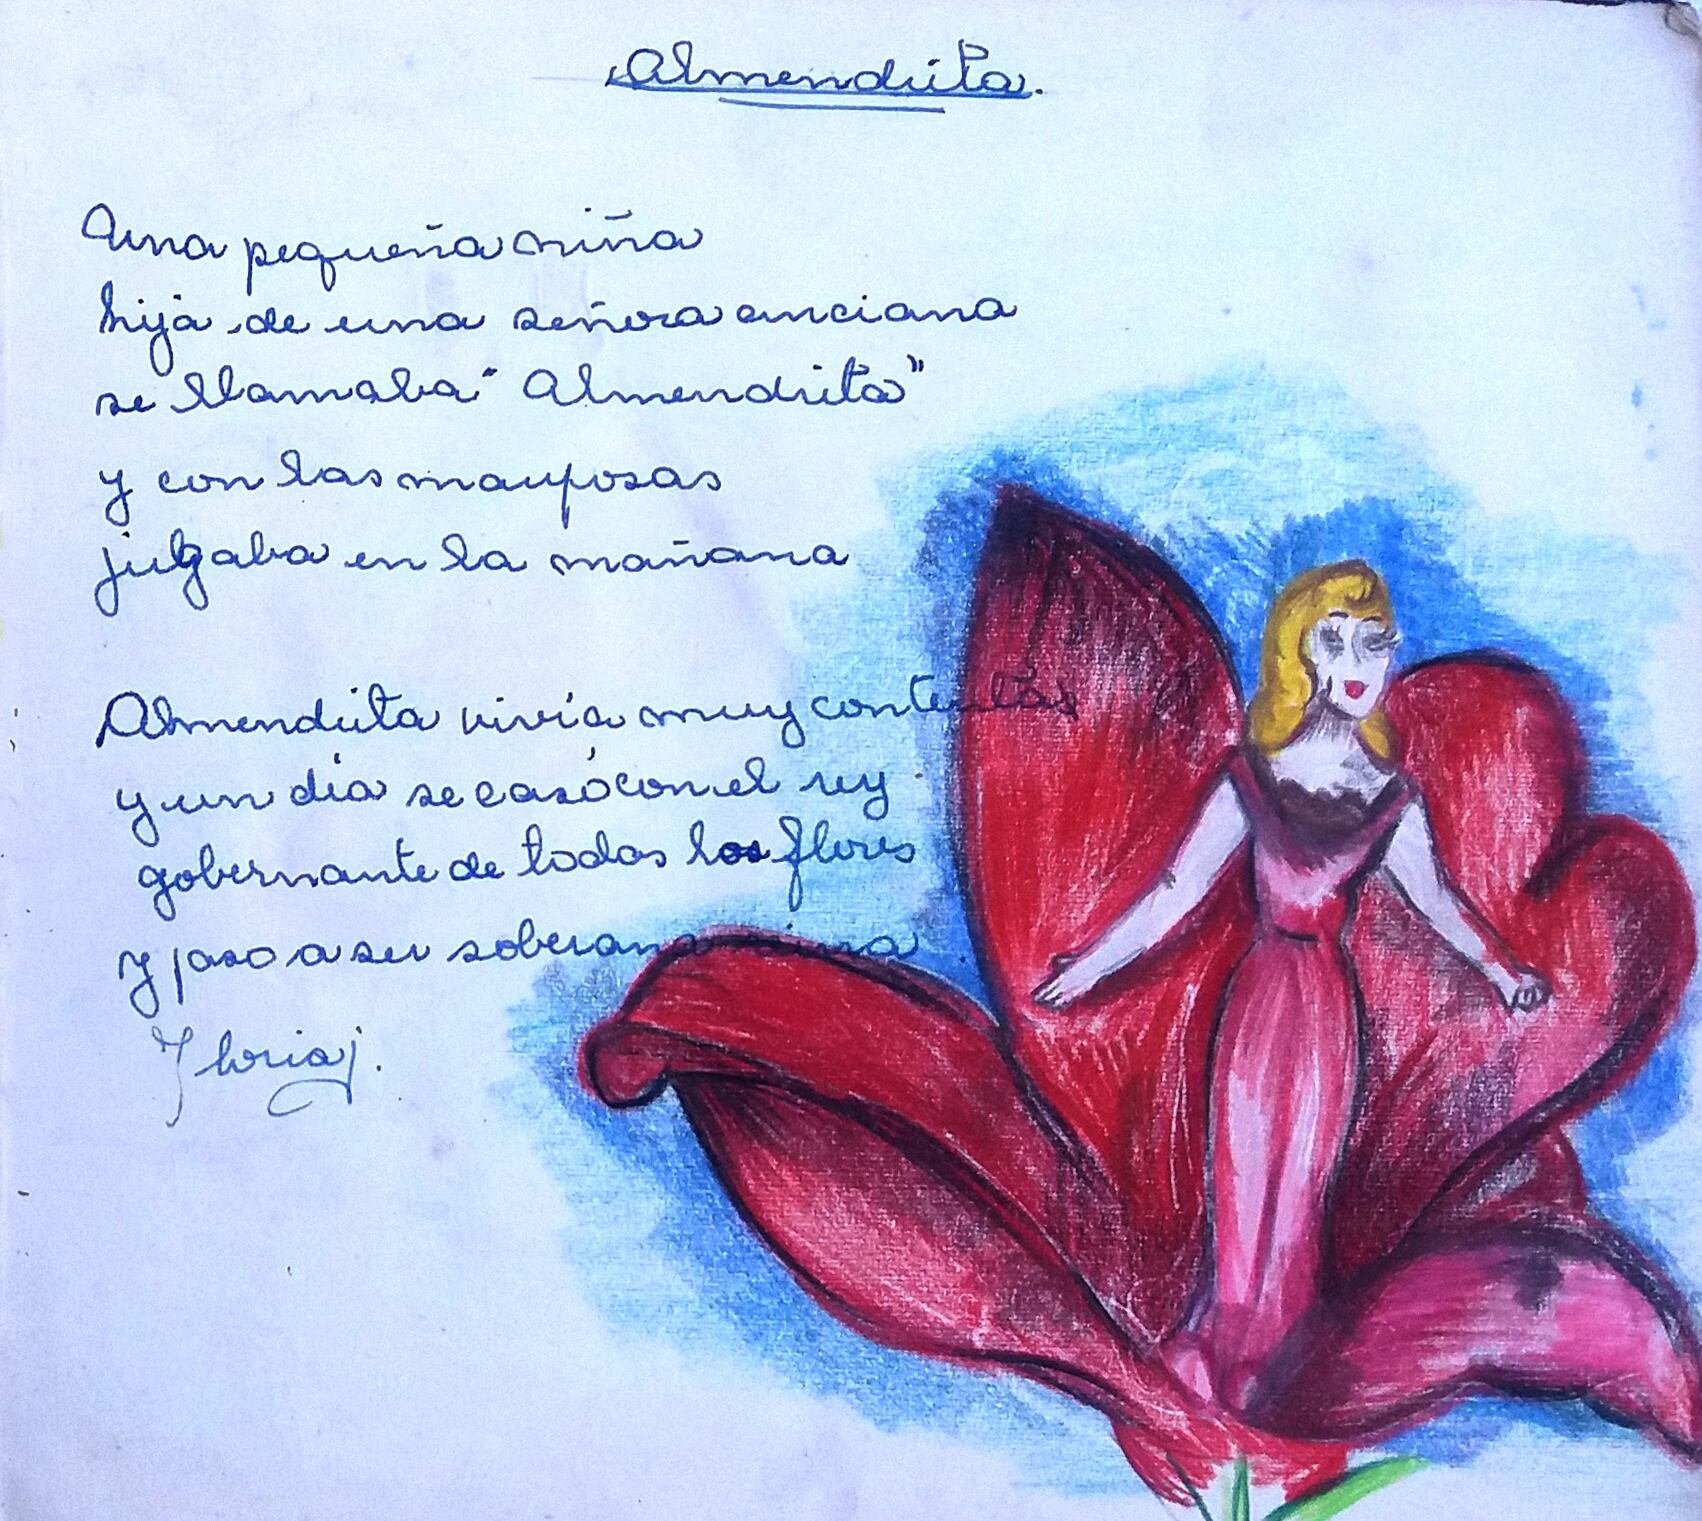 Almendrita.
Una pequeña niña
hija de una señora anciana
se llamaba "Almendrita"
y con las mariposas
jugaba en la mañana
Almendrita vivía muy contenta
y un día se casó con el rey
gobernante de todas las flores
y paso a ser soberana